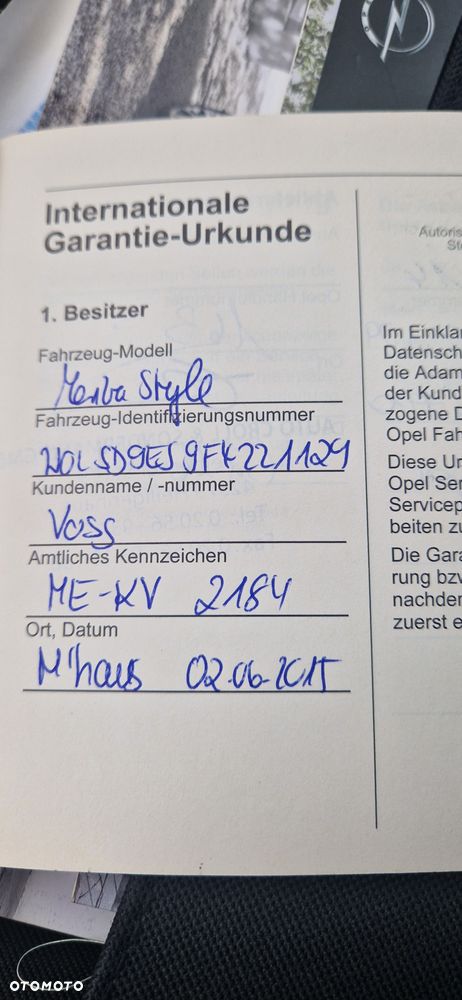 Internationale
Garantie-Urkunde
1. Besitzer
Fahrzeug-Modell
Style
Fahrzeug-Identifizierungsnummer
Kundenname / -nummer
Voss
Amtliches Kennzeichen
ME-KV 2184
Ort, Datum
M'haus 02.06.2015
Autoris
Im Einkla
Datensch
die Adam
der Kund
zogene D
Opel Fah
Diese Ur
Opel Ser
Servicep
beiten zu
Die Gara
rung bzv
nachder
zuerst e
OTOMOTO